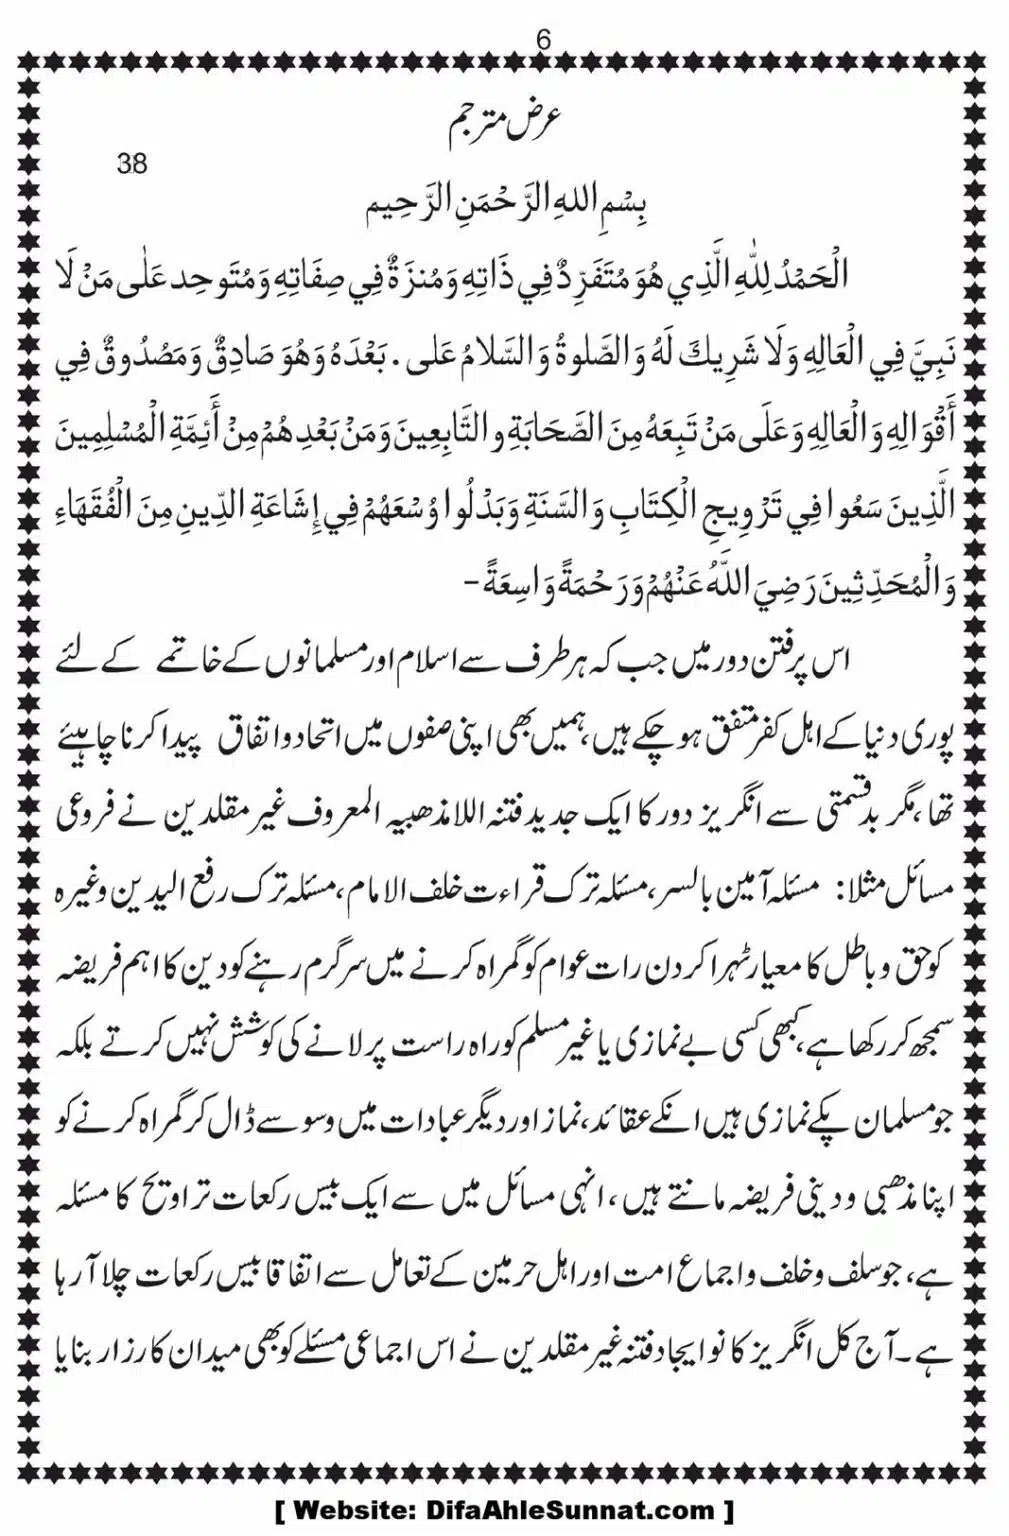 6
عرض مترجم
38
بِسْمِ اللهِ الرَّحْمَنِ الرَّحِيم
الْحَمْدُ لِلّٰهِ الَّذِي هُوَ مُتَفَرِّدٌ فِي ذَاتِهِ وَمُنزَةٌ فِي صِفَاتِهِ وَمُتَوحِد عَلٰى مَنْ لَا
نَبِيَّ فِي الْعَالِهِ وَلَا شَرِيكَ لَهُ وَالصَّلوةُ وَالسَّلامُ عَلى . بَعْدَهُ وَهُوَ صَادِقٌ وَمَصْدُوقٌ فِي
أَقْوَالِهِ وَالْعَالِهِ وَعَلَى مَنْ تَبِعَهُ مِنَ الصَّحَابَةِ و التَّابِعِينَ وَمَنْ بَعْدِهُمْ مِنْ أَئِمَّةِ الْمُسْلِمِينَ
الَّذِينَ سَعُوا فِي تَرْوِيجِ الْكِتَابِ وَالسَّنَةِ وَبَدْلُوا وُسْعَهُمْ فِي إِشَاعَةِ الدِّينِ مِنَ الْفُقَهَاءِ
وَالْمُحَدِّثِينَ رَضِيَ اللَّهُ عَنْهُمْ وَرَحْمَةً وَاسِعَةً-
اس پرفتن دور میں جب کہ ہر طرف سے اسلام اور مسلمانوں کے خاتمے کے لئے
پوری دنیا کے اہل کفر متفق ہو چکے ہیں، ہمیں بھی اپنی صفوں میں اتحاد واتفاق پیدا کرنا چاہیئے
تھا، مگر بدقسمتی سے انگریز دور کا ایک جدید فتنہ اللامذھبیہ المعروف غیر مقلدین نے فروعی
مسائل مثلا: مسئلہ آمین بالسر، مسئلہ ترک قراءت خلف الامام، مسئلہ ترک رفع الیدین وغیرہ
کو حق و باطل کا معیار ٹہرا کر دن رات عوام کو گمراہ کرنے میں سرگرم رہنے کو دین کا اہم فریضہ
سمجھ کر رکھا ہے، کبھی کسی بے نمازی یا غیر مسلم کو راہ راست پر لانے کی کوشش نہیں کرتے بلکہ
جو مسلمان پکے نمازی ہیں انکے عقائد، نماز اور دیگر عبادات میں وسوسے ڈال کر گمراہ کرنے کو
اپنا مذھبی و دینی فریضہ مانتے ہیں، انہی مسائل میں سے ایک بیس رکعات تراویح کا مسئلہ
ہے، جو سلف و خلف و اجماع امت اور اہل حرمین کے تعامل سے اتفاقا بیس رکعات چلا آرہا
ہے۔ آج کل انگریز کا نو ایجاد فتنہ غیر مقلدین نے اس اجماعی مسئلے کو بھی میدان کارزار بنایا
[ Website: DifaAhleSunnat.com ]